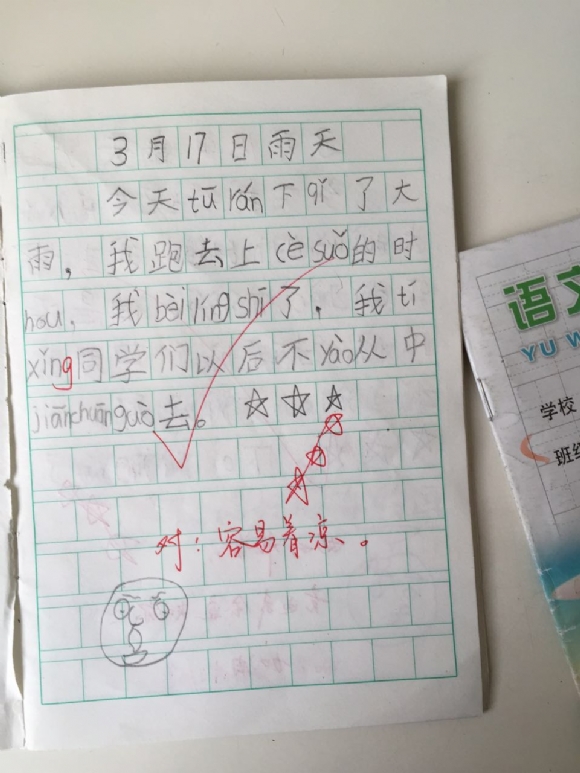 3月17日雨天
今天tū rán下qǐ了大
雨，我跑去上cè suǒ的时
hou，我bèi lín shī了，我tí
xǐng同学们以后不yào从中
jiān chuān guò去。☆☆☆
对：容易着凉。
语文
YU W
学校
班级